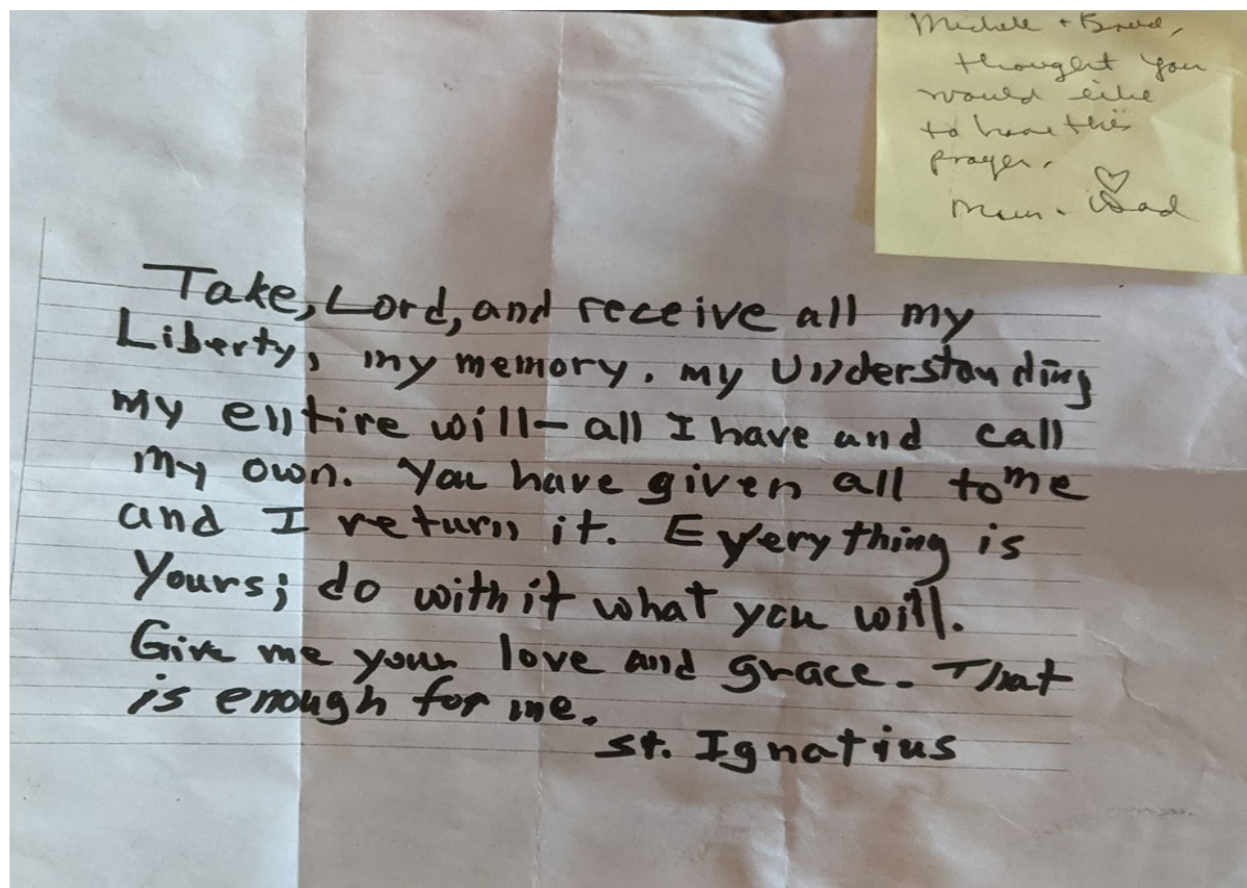 Michele + Brad,
thought you
would like
to have this
prayer.
♡
Mom + Dad
Take, Lord, and receive all my
Liberty, my memory. my Understanding
my entire will - all I have and call
my own. You have given all to me
and I return it. Everything is
Yours; do with it what you will.
Give me your love and grace. That
is enough for me.
St. Ignatius